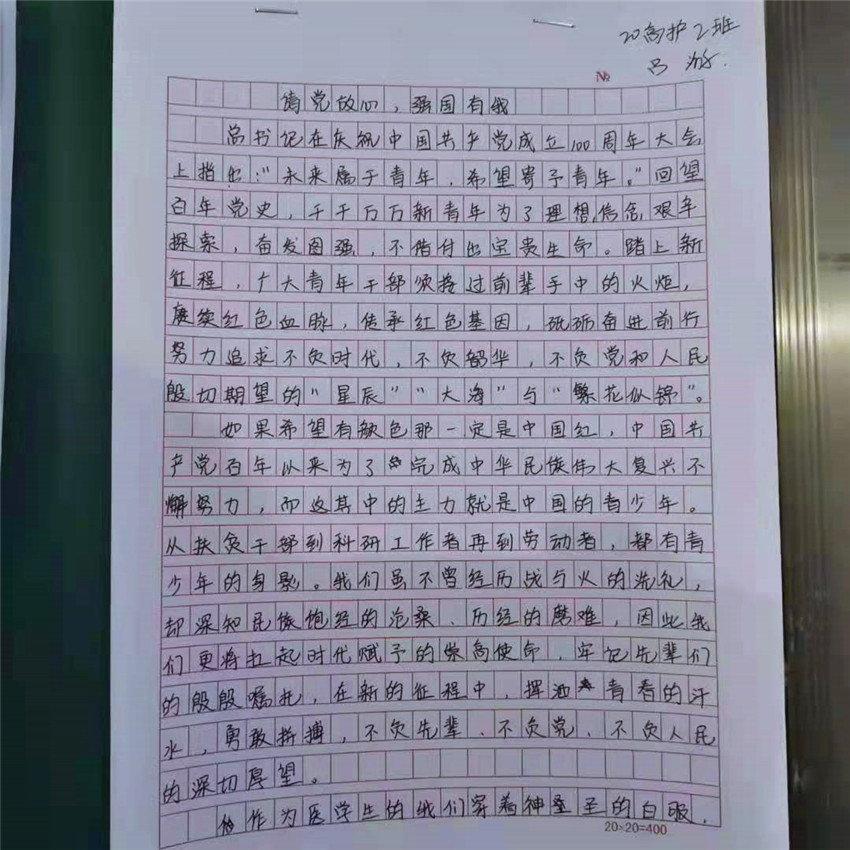 20高护2班
吕
№
请党放心，强国有我
总书记在庆祝中国共产党成立100周年大会
上指出："未来属于青年，希望寄予青年。"回望
百年党史，千千万万新青年为了理想,信念,艰辛
探索，奋发图强，不惜付出宝贵生命。踏上新
征程，广大青年干部须接过前辈手中的火炬，
赓续红色血脉，传承红色基因，砥砺奋进前行
努力追求不负时代，不负韶华，不负党和人民
殷切期望的"星辰""大海"与"繁花似锦"。
如果希望有颜色那一定是中国红，中国共
产党百年以来为了完成中华民族伟大复兴不
懈努力，而这其中的主力就是中国的青少年。
从扶贫干部到科研工作者再到劳动者，都有青
少年的身影。我们虽不曾经历战与火的洗礼，
却深知民族饱经的沧桑、历经的磨难，因此我
们更将扛起时代赋予的崇高使命，牢记先辈们
的殷殷嘱托，在新的征程中，挥洒青春的汗
水，勇敢拼搏，不负先辈、不负党、不负人民
的深切厚望。
作为医学生的我们穿着神圣圣的白服，
20×20=400